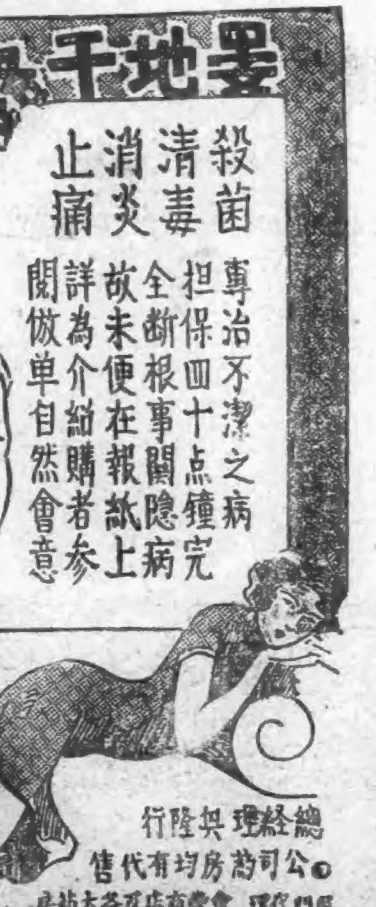 墨地干
殺菌
清毒
消炎
止痛
專治不潔之病
担保四十点鐘完
全斷根事關隱病
故未便在報紙上
詳為介紹購者参
閱倣单自然會意
總経理興隆行
公司葯房均有代售